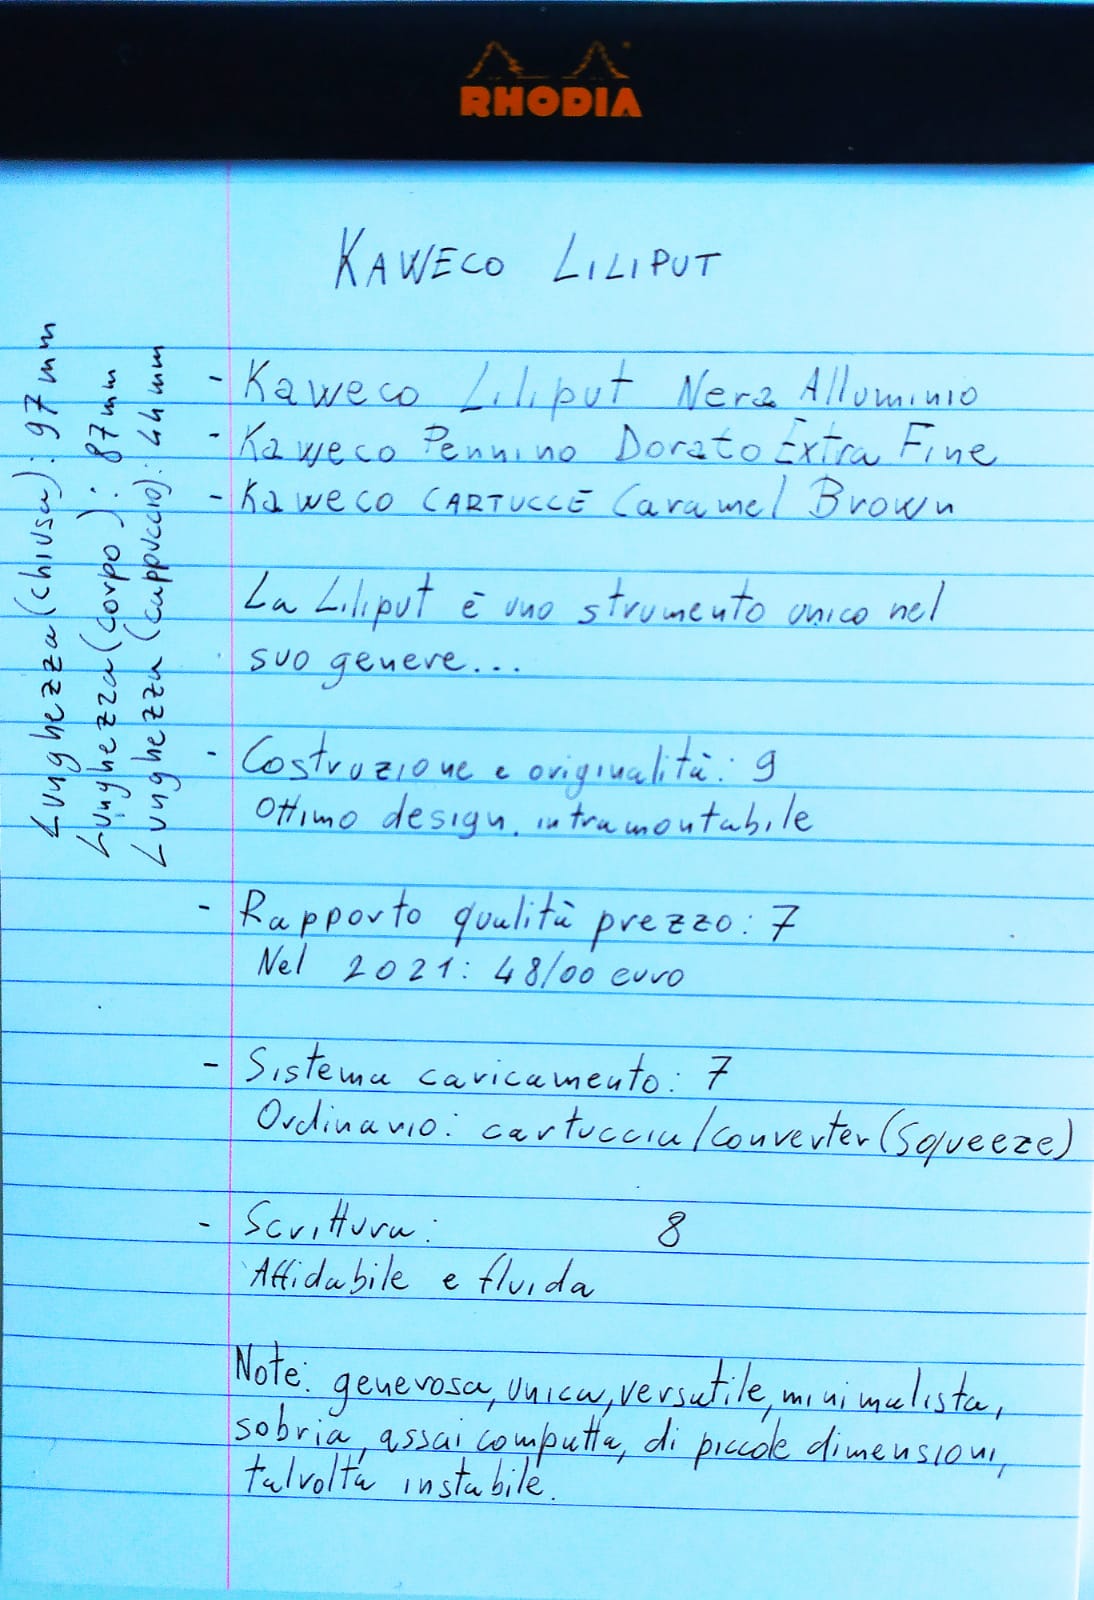 RHODIA
KAWECO LILIPUT
- Kaweco Liliput Nera Alluminio
- Kaweco Pennino Dorato Extra Fine
- Kaweco CARTUCCE Caramel Brown
La Liliput è uno strumento unico nel
suo genere...
- Costruzione e originalità: 9
Ottimo design, intramontabile
- Rapporto qualità prezzo: 7
Nel 2021: 48/00 euro
- Sistema caricamento: 7
Ordinario: cartuccia/converter (squeeze)
- Scrittura: 8
Affidabile e fluida
Note: generosa, unica, versatile, minimalista,
sobria, assai compatta, di piccole dimensioni,
talvolta instabile.
Lunghezza (chiusa): 97mm
Lunghezza (corpo): 87mm
Lunghezza (cappuccio): 44mm